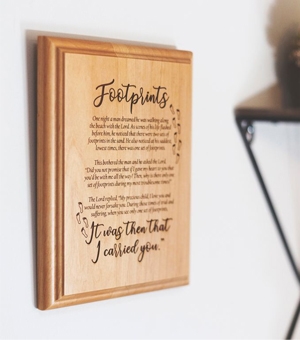 Footprints
One night a man dreamed he was walking along
the beach with the Lord. As scenes of his life flashed
before him, he noticed that there were two sets of
footprints in the sand. He also noticed at his saddest,
lowest times, there was one set of footprints.
This bothered the man and he asked the Lord,
"Did you not promise that if I gave my heart to you that
you'd be with me all the way? Then, why is there only one
set of footprints during my most troublesome times?"
The Lord replied, "My precious child, I love you, and
would never forsake you. During those times of trial and
suffering, when you see only one set of footprints,
It was then that
I carried you."